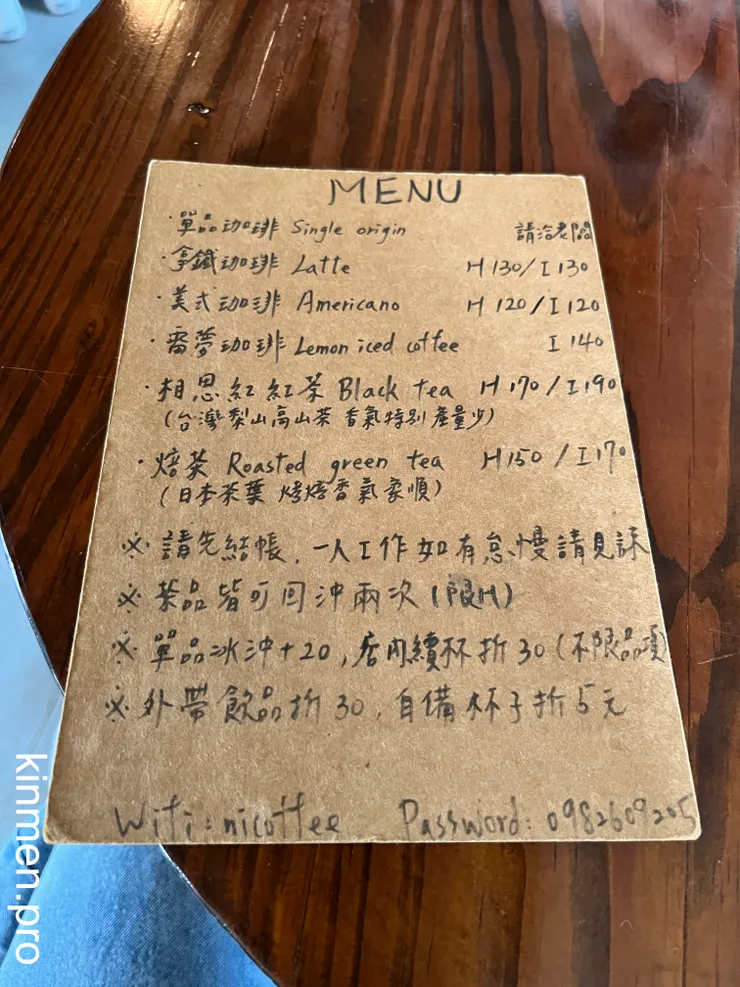 MENU
·單品咖啡 Single origin 請洽老闆
·拿鐵咖啡 Latte H 130/I 130
·美式咖啡 Americano H 120/I 120
·西西里咖啡 Lemon iced coffee I 140
·相思紅 紅茶 Black tea H 170/I 190
(台灣梨山高山茶 香氣特別 產量少)
·焙茶 Roasted green tea H 150/I 170
(日本茶葉 烤焙香氣柔順)
※ 請先結帳,一人工作如有怠慢請見諒
※ 茶品皆可回沖兩次(限H)
※ 單品冰沖+20,店內續杯折30(不限品項)
※ 外帶飲品折30,自備杯子折5元
Wifi:nicoffee Password:0982609205
kinmen.pro